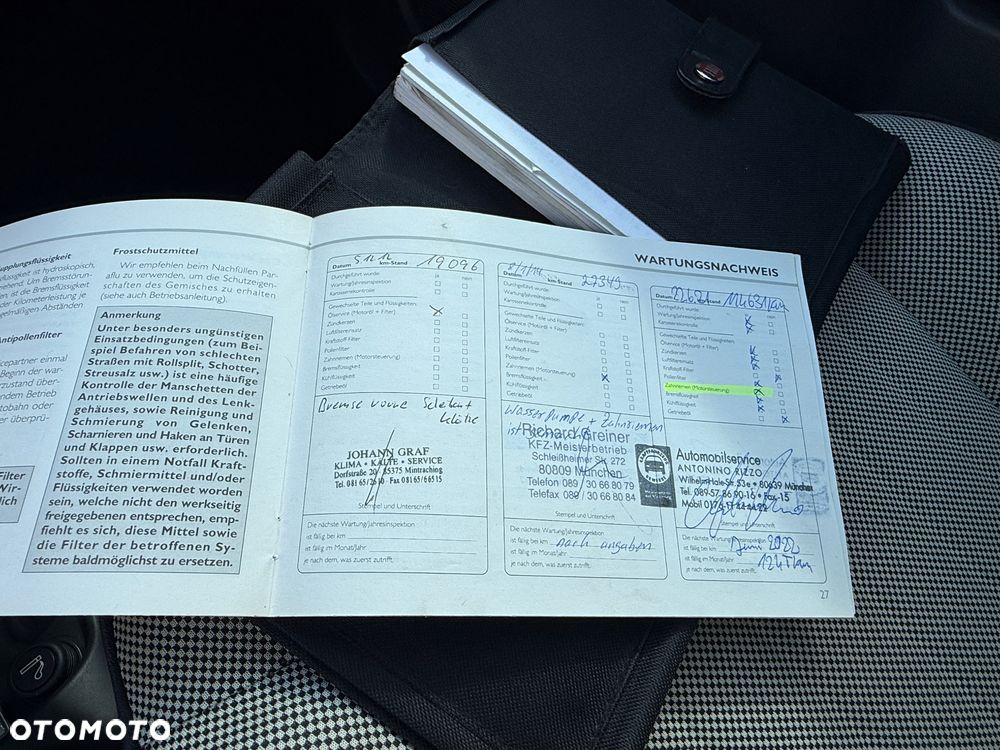 upplungsflüssigkeit
lüssigkeit ist hydroskopisch,
Frostschutzmittel
Wir empfehlen beim Nachfüllen Par-
aflu zu verwenden, um die Schutzeigen-
schaften des Gemisches zu erhalten
(siehe auch Betriebsanleitung).
ntipollenfilter
icepartner einmal
Filter
Wir-
lich
Anmerkung
Unter besonders ungünstigen
Einsatzbedingungen (zum Bei-
spiel Befahren von schlechten
Straßen mit Rollsplit, Schotter,
Streusalz usw.) ist eine häufige
Kontrolle der Manschetten der
Antriebswellen und des Lenk-
gehäuses, sowie Reinigung und
Schmierung von Gelenken,
Scharnieren und Haken an Türen
und Klappen usw. erforderlich.
Sollten in einem Notfall Kraft-
stoffe, Schmiermittel und/oder
Flüssigkeiten verwendet worden
sein, welche nicht den werkseitig
freigegebenen entsprechen, emp-
fiehlt es sich, diese Mittel sowie
die Filter der betroffenen Sy-
steme baldmöglichst zu ersetzen.
WARTUNGSNACHWEIS
Datum 5.12.12 km-Stand 19096
Durchgeführt wurde: ja nein
Wartung/Jahresinspektion
Karosseriekontrolle
Gewechselte Teile und Flüssigkeiten:
Ölservice (Motoröl + Filter)
Zündkerzen
Luftfiltereinsatz
Kraftstoff-Filter
Pollenfilter
Zahnriemen (Motorsteuerung)
Bremsflüssigkeit
Kühlflüssigkeit
Getriebeöl
Bremse vorne
JOHANN GRAF
KLIMA • KÄLTE • SERVICE
Dorfstraße 20 85375 Mintraching
Tel. 08165/2610 - Fax 08165/66515
Stempel und Unterschrift
Die nächste Wartung/Jahresinspektion
ist fällig bei km
ist fällig im Monat/Jahr
je nach dem, was zuerst zutrifft.
Datum 8/1/14 km-Stand 29349
Durchgeführt wurde: ja nein
Wartung/Jahresinspektion
Karosseriekontrolle
Gewechselte Teile und Flüssigkeiten:
Ölservice (Motoröl + Filter)
Zündkerzen
Luftfiltereinsatz
Kraftstoff-Filter
Pollenfilter
Zahnriemen (Motorsteuerung)
Bremsflüssigkeit
Kühlflüssigkeit
Getriebeöl
Wasserpumpe + Zahnriemen
ist
Richard Greiner
KFZ-Meisterbetrieb
Schleißheimer Str. 272
80809 München
Telefon 089 / 30 66 80 79
Telefax 089 / 30 66 80 84
Stempel und Unterschrift
Die nächste Wartung/Jahresinspektion
ist fällig bei km nach angaben
ist fällig im Monat/Jahr
je nach dem, was zuerst zutrifft.
Datum 22.6.21 114631 km
Durchgeführt wurde: ja nein
Wartung/Jahresinspektion
Karosseriekontrolle
Gewechselte Teile und Flüssigkeiten:
Ölservice (Motoröl + Filter)
Zündkerzen
Luftfiltereinsatz
Kraftstoff-Filter
Pollenfilter
Zahnriemen (Motorsteuerung)
Bremsflüssigkeit
Kühlflüssigkeit
Getriebeöl
Automobilservice
ANTONINO RIZZO
Wilhelm-Hale-Str. 53e • 80639 München
Tel. 089-57 86 90-16 • Fax -15
Stempel und Unterschrift
Die nächste Wartung/Jahresinspektion
ist fällig bei km Juni 2022
ist fällig im Monat/Jahr 124 Tkm
je nach dem, was zuerst zutrifft.
27
OTOMOTO